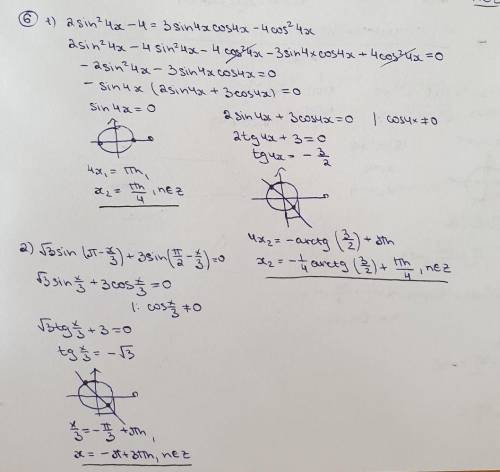 ⑥ 1) 2sin²4x - 4 = 3sin4xcos4x - 4cos²4x
2sin²4x - 4sin²4x - 4cos²4x - 3sin4xcos4x + 4cos²4x = 0
- 2sin²4x - 3sin4xcos4x = 0
- sin4x (2sin4x + 3cos4x) = 0
sin4x = 0
4x₁ = πn,
x₂ = πn/4, n∈z
2sin4x + 3cos4x = 0 |: cos4x ≠ 0
2tg4x + 3 = 0
tg4x = - 3/2
4x₂ = -arctg(3/2) + πn
x₂ = -1/4 arctg(3/2) + πn/4, n∈z
2) √3sin(π - x/3) + 3sin(π/2 - x/3) = 0
√3sin x/3 + 3cos x/3 = 0
|: cos x/3 ≠ 0
√3tg x/3 + 3 = 0
tg x/3 = -√3
x/3 = -π/3 + πn,
x = -π + 3πn, n∈z